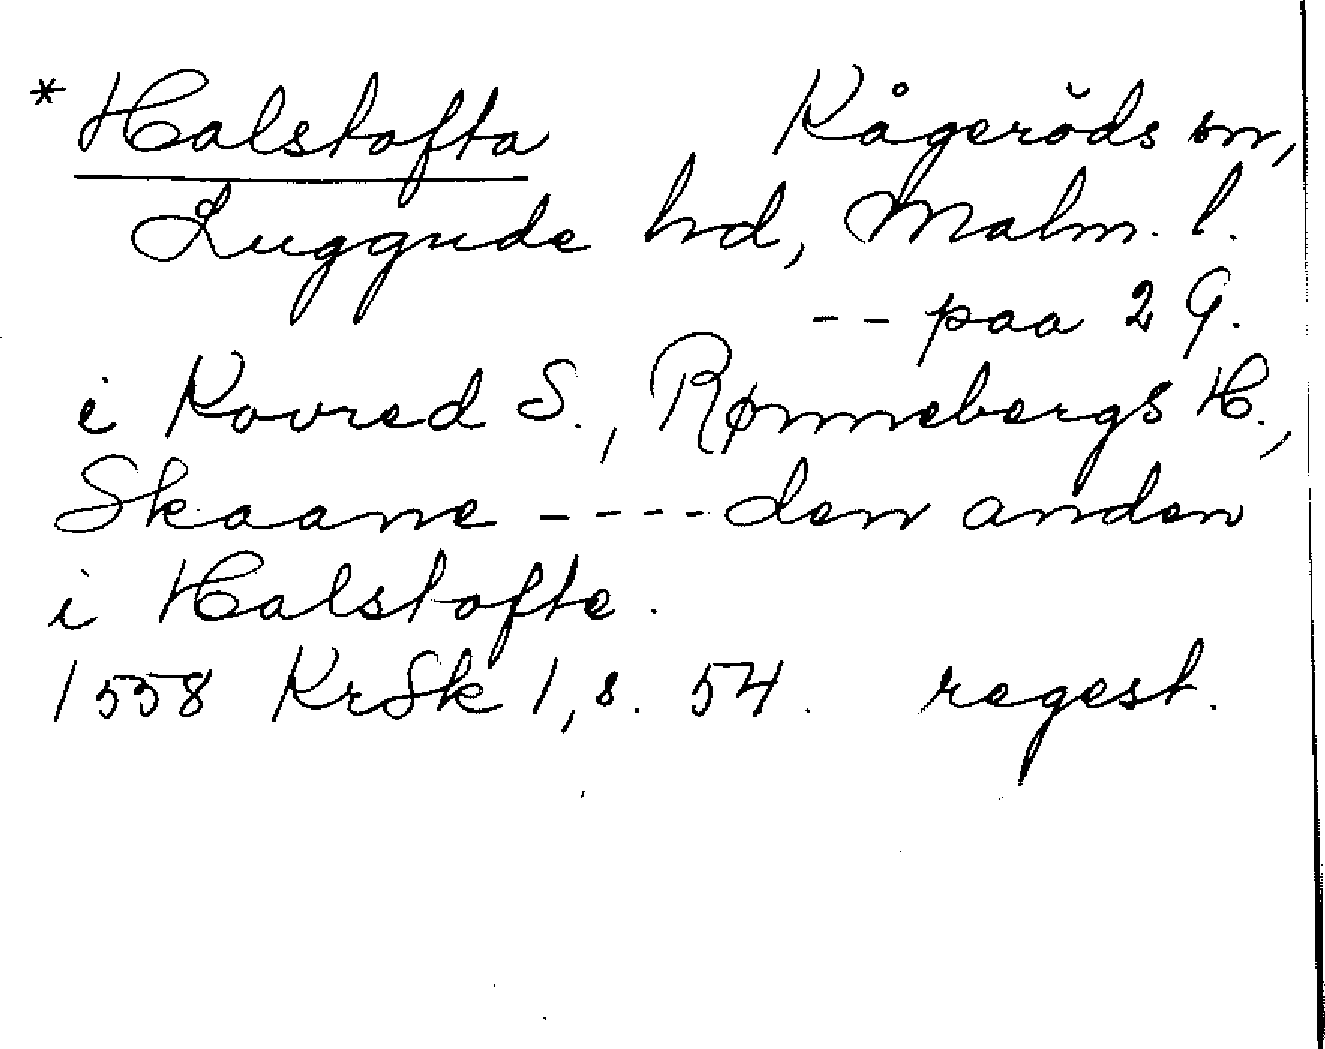 * Halstofta Kågeröds sn,
Luggude hd, Malm. l.
-- paa 2 G.
i Kovred S., Rønnebergs H.,
Skaane ---- den anden
i Halstofte.
1558 KrSk 1, s. 54. regest.